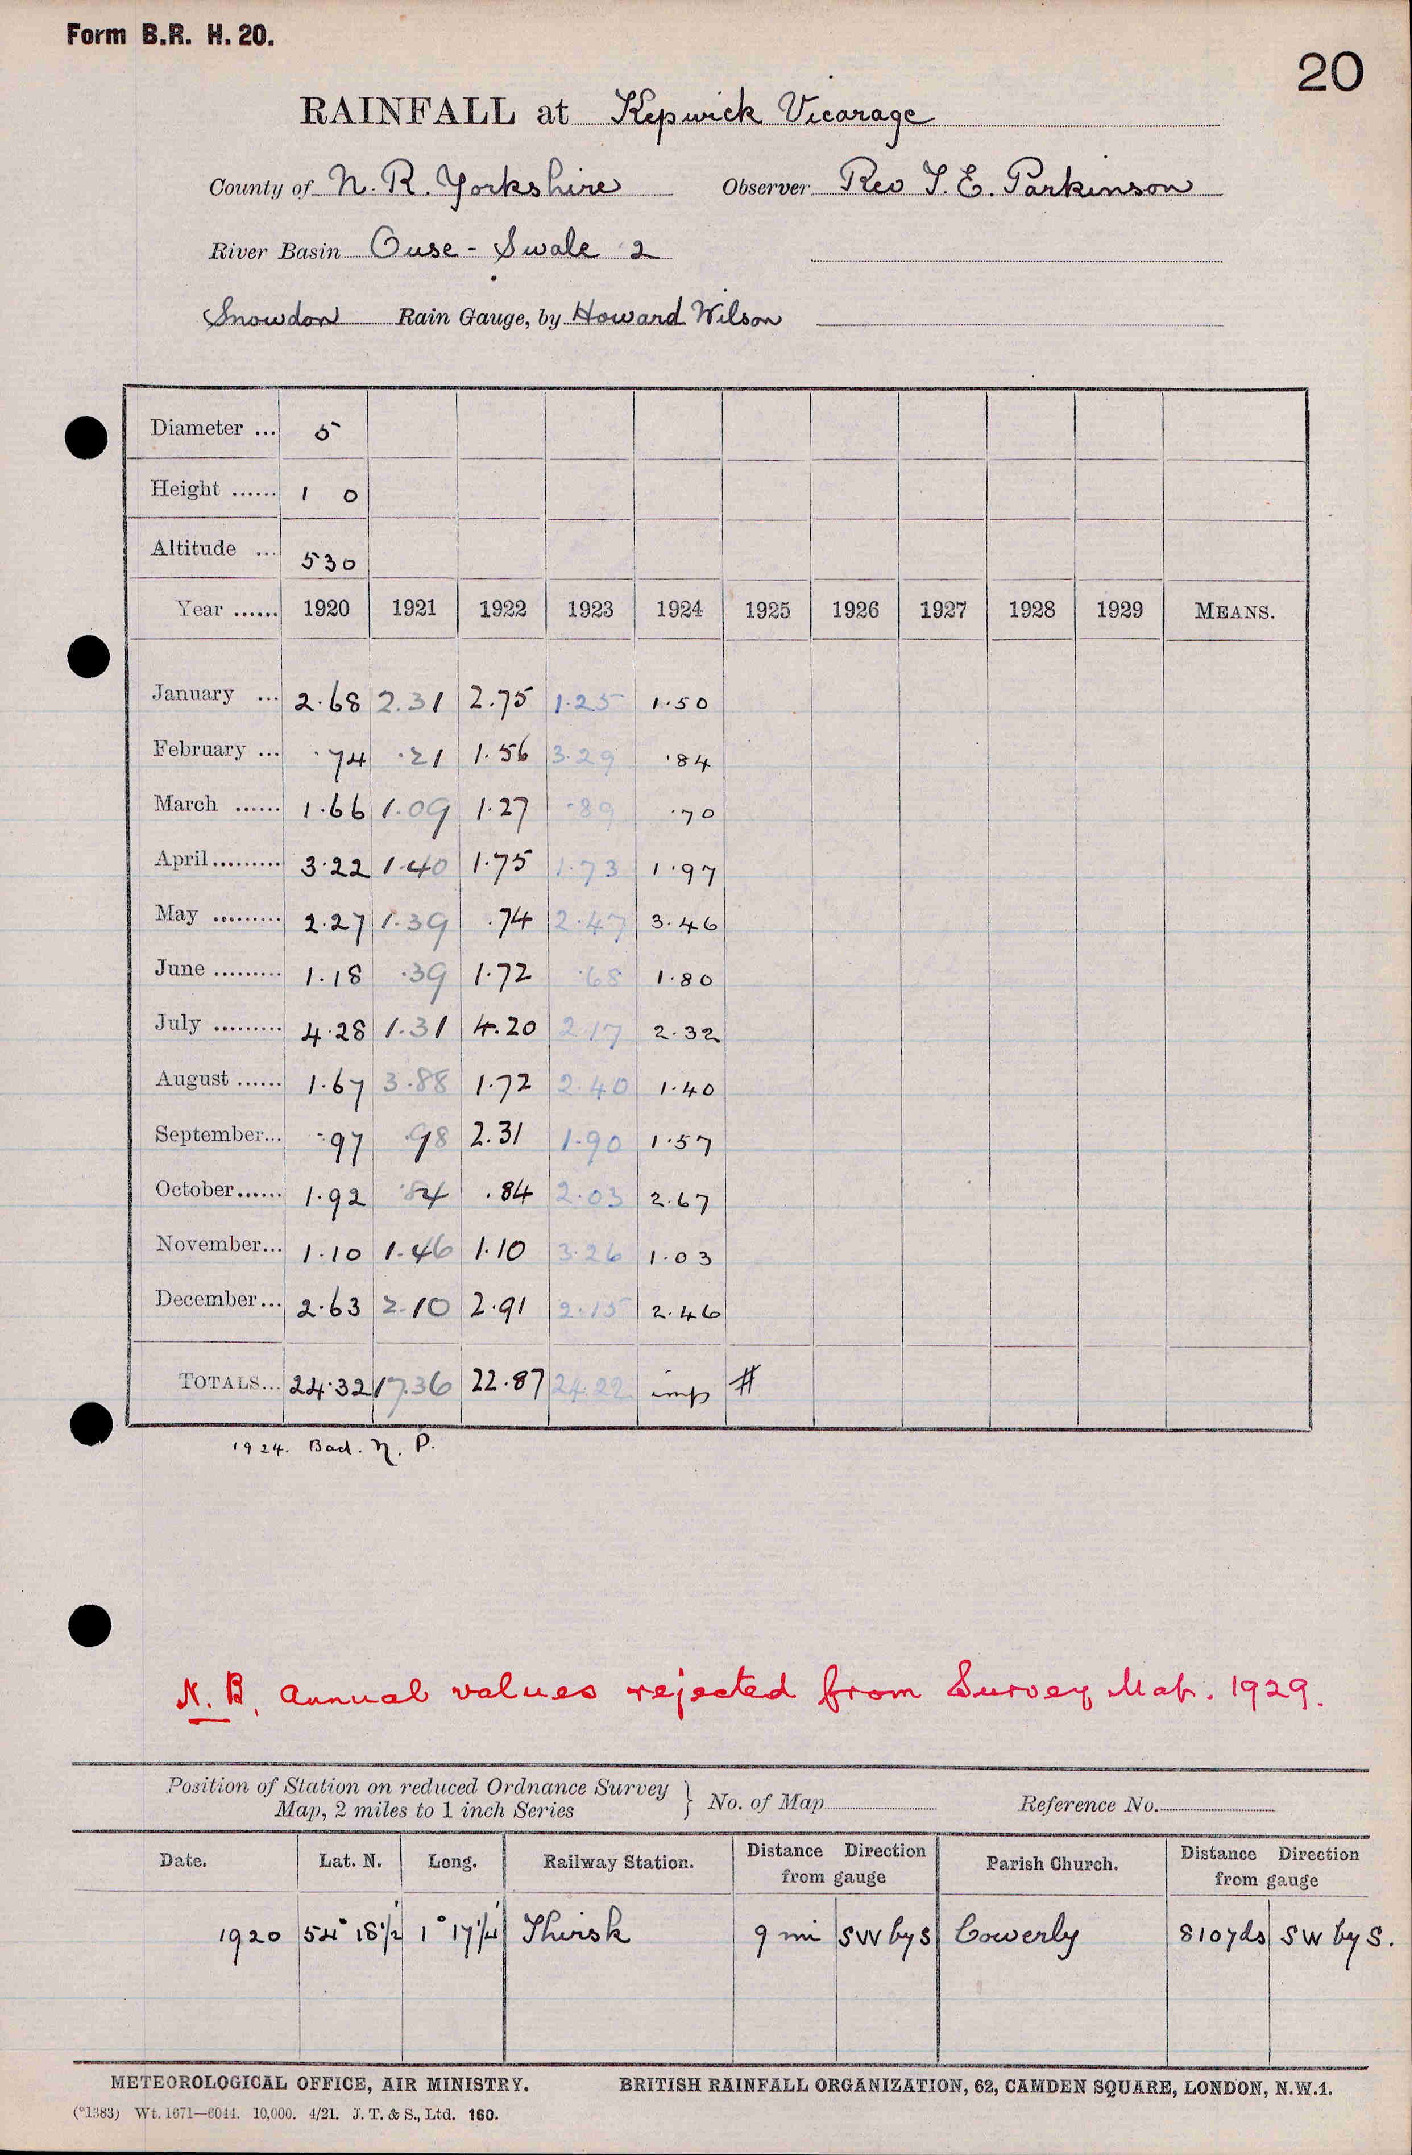 Form B.R. H. 20.
20
RAINFALL at Kepwick Vicarage
County of N. R. Yorkshire Observer Rev T. E. Parkinson
River Basin Ouse - Swale 2
Snowdon Rain Gauge, by Howard Wilson
Diameter ... 5
Height ...... 1 0
Altitude ... 530
Year ...... 1920 1921 1922 1923 1924 1925 1926 1927 1928 1929 MEANS.
January ... 2.68 2.31 2.75 1.25 1.50
February ... .74 .21 1.56 3.29 .84
March ...... 1.66 1.09 1.27 .89 .70
April ......... 3.22 1.40 1.75 1.73 1.97
May ......... 2.27 1.39 .74 2.47 3.46
June ......... 1.18 .39 1.72 .68 1.80
July ......... 4.28 1.31 4.20 2.17 2.32
August ...... 1.67 3.88 1.72 2.40 1.40
September... .97 .98 2.31 1.90 1.57
October...... 1.92 .84 .84 2.03 2.67
November... 1.10 1.46 1.10 3.26 1.03
December... 2.63 2.10 2.91 2.15 2.46
TOTALS... 24.32 17.36 22.87 24.22 imp #
1924. Bad. N. P.
N.B. Annual values rejected from Survey Map. 1929.
Position of Station on reduced Ordnance Survey
Map, 2 miles to 1 inch Series } No. of Map Reference No.
Date. Lat. N. Long. Railway Station. Distance Direction from gauge Parish Church. Distance Direction from gauge
1920 54° 18½' 1° 17¼' Thirsk 9 mi SW by S Cowerly 810 yds SW by S.
METEOROLOGICAL OFFICE, AIR MINISTRY. BRITISH RAINFALL ORGANIZATION, 62, CAMDEN SQUARE, LONDON, N.W.1.
(*1383) Wt. 1671—6044. 10,000. 4/21. J. T. & S., Ltd. 160.